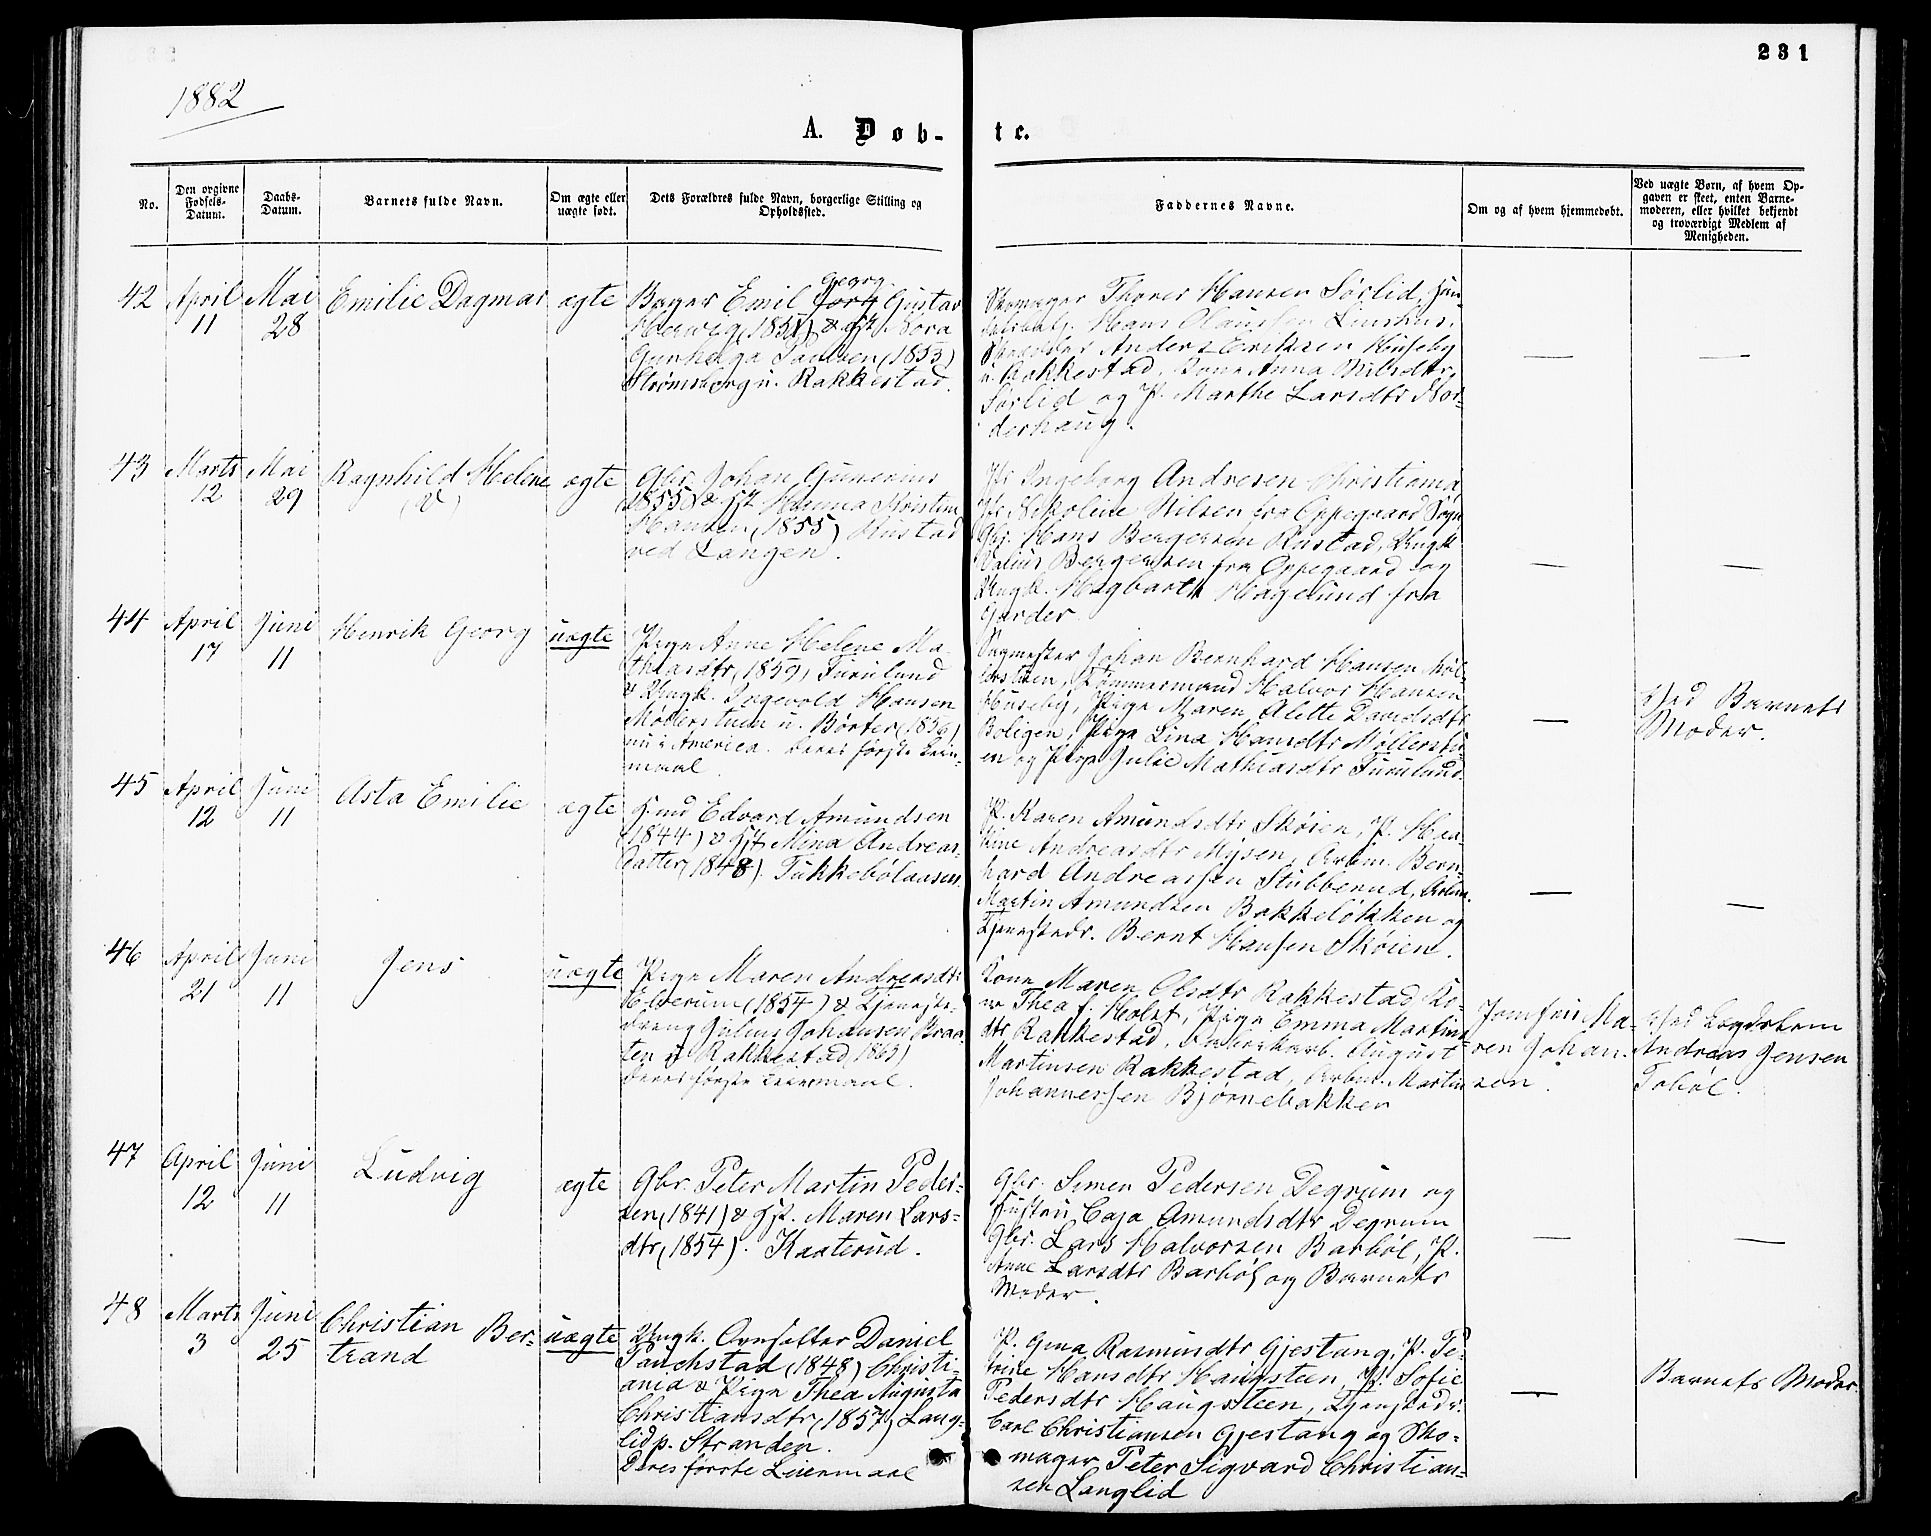 231
1882
A. Døb-
te.
No.
Den opgivne Fødsels-Datum.
Daabs-Datum.
Barnets fulde Navn.
Om ægte eller uægte født.
Dets Forældres fulde Navn, borgerlige Stilling og Opholdssted.
Faddernes Navne.
Om og af hvem hjemmedøbt.
Ved uægte Børn, af hvem Opgaven er skeet, enten Barnemoderen, eller hvilket bekjendt og troværdigt Medlem af Menigheden.
42 April 11 Mai 28 Emilie Dagmar ægte
Georg
Bager Emil Gustav
(1851) & Hst Nora
(1853)
Strømsborg u. Rakkestad.
Skomager Thorer Hansen Sørlid,
Hans Olaussen
Anders Eriksen Huseby
u. Rakkestad, Kone Anna Nilsdtr
Sørlid og P. Marthe Larsdtr Nor-
derhaug.
— —
43 Marts 12 Mai 29 Ragnhild Helene (V) ægte
Gbr. Johan Gunerius
(1855) & Hst Hanna Kristine
Hansen (1855) Rustad
ved Langen.
Ingeborg Andresen Christiania
Nikoline Nilsen fra Oppegaard Sogn
Gbr. Hans Bergersen Rustad, Ungk.
Bergersen fra Oppegaard og
Ungk. Hagbart Hagelund fra
Garder.
— —
44 April 17 Juni 11 Henrik Georg uægte
Pige Anne Helene Ma-
thiasdtr (1859) Furulund
& Ungk. Hansen
u. Børter (1856)
nu i America. Deres første Leier-
maal.
Sagmester Johan Bernhard Hansen Møl-
lerstuen, Tømmermand Halvor Hansen
Huseby, Pige Maren Alette Davidsdtr
Boligen, Pige Lina Hansdtr Møllerstu-
en og Pige Julie Mathiasdtr Furulund.
—
Ved Barnets
Moder.
45 April 12 Juni 11 Asta Emilie ægte
Hmd Edvard Amundsen
(1844) & Hst. Mina Andreas-
datter (1848) Tukkebølaasen.
P. Karen Amundsdtr Skøien, P. Haa-
kine Andreasdtr Mysen, Arbm. Bern-
hard Andreassen Stubberud, Arbm.
Martin Amundsen Bakkeløkken og
Tjenestedr. Bernt Hansen Skøien.
— —
46 April 21 Juni 11 Jens uægte
Pige Maren Andreasdtr
Elverum (1854) & Tjeneste-
dreng Julius Johansen Braa-
ten u. Rakkestad (1863)
Deres første Leiermaal.
Kone Maren Olsdtr Rakkestad Ko-
ne Thea f. Holst, Pige Emma Martins-
dtr Rakkestad, August
Martinsen Rakkestad, Arbm. Martin
Johannessen Bjørnebakken
Jomfru Ma-
ren Johan-
sen.
Ved Lægdslem
Andreas Jensen
Tobøl.
47 April 12 Juni 11 Ludvig ægte
Gbr. Peter Martin Peder-
sen (1841) & Hst. Maren Lars-
dtr (1854). Kaaterud.
Gbr. Simen Pedersen Degrum og
Hustru Caja Amundsdtr Degrum
Gbr. Lars Halvorsen Barbøl, P.
Anne Larsdtr Barbøl og Barnets
Moder.
— —
48 Marts 3 Juni 25 Christian Ber-
trand uægte
Ungk. Ovnsætter Daniel
Tauchstad (1848) Christi-
ania & Pige Thea Augusta
Christiansdtr (1857) Lang-
lid p. Stranden.
Deres første Leiermaal
P. Gina Rasmusdtr Gjestang, P. Pe-
trine Hansdtr Haugsteen, P. Sofie
Pedersdtr Haugsteen, Tjenestedr.
Carl Christiansen Gjestang og Sko-
mager Peter Sigvard Christian-
sen Langlid
—
Barnets Moder.